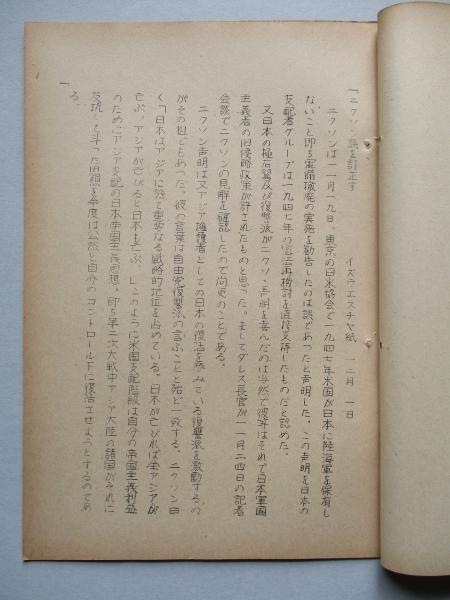 「ニクソン誤を訂正す
イズヴエスチヤ紙 一二月一日
ニクソンは一一月一九日、東京の日米協会で一九四七年米国が日本に陸海軍を保有し
ないこと即ち軍備撤廃の実施を勧告したのは誤であつたと声明した。この声明を日本の
支配者グループは一九四七年の憲法再検討を直接支持したものだと認めた。
又日本の極右翼及び復讐派がニクソン声明を喜んだのは当然で彼等はそれで日本軍国
主義者の旧侵略政策が許されたものと思つた。ましてダレス長官が一一月二四日の記者
会談でニクソンの見解を確認したので尚更のことである。
ニクソン声明は又アジア擁護者としての日本の復活を夢みている復讐派を激励するの
がその狙でもあつた。彼の言葉は自由党復讐派の言ふことと殆ど一致する。ニクソン曰
く「日本はアジアに於て重要なる戦略的地位を占めている。日本が亡びれば全アジアが
亡ぶ。アジアが亡びると日本も亡ぶ。」このように米国支配階級は自分の帝国主義利益
のためにアジア支配の日本帝国主義思想、即ち第二次大戦中アジア大陸の諸国がみれに
反抗して斗つた旧思想を今度は公然と自分のコントロール下に復活させようとするのであ
る。
」